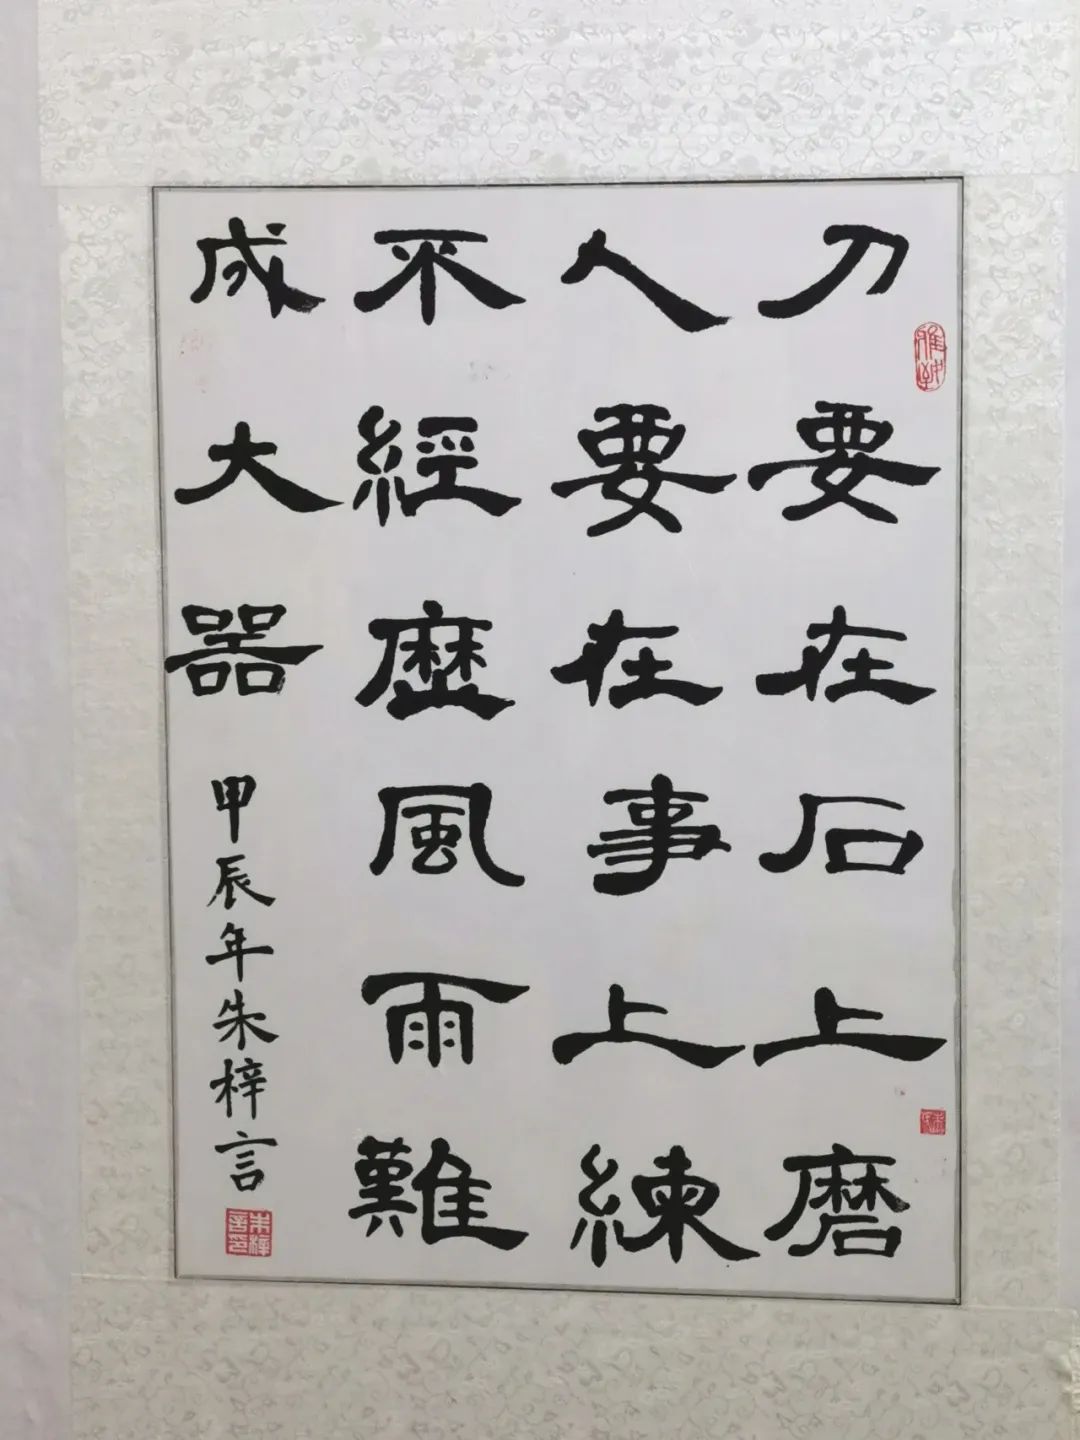 刀要在石上磨
人要在事上練
不經歷風雨難
成大器
甲辰年朱梓言
朱梓言印